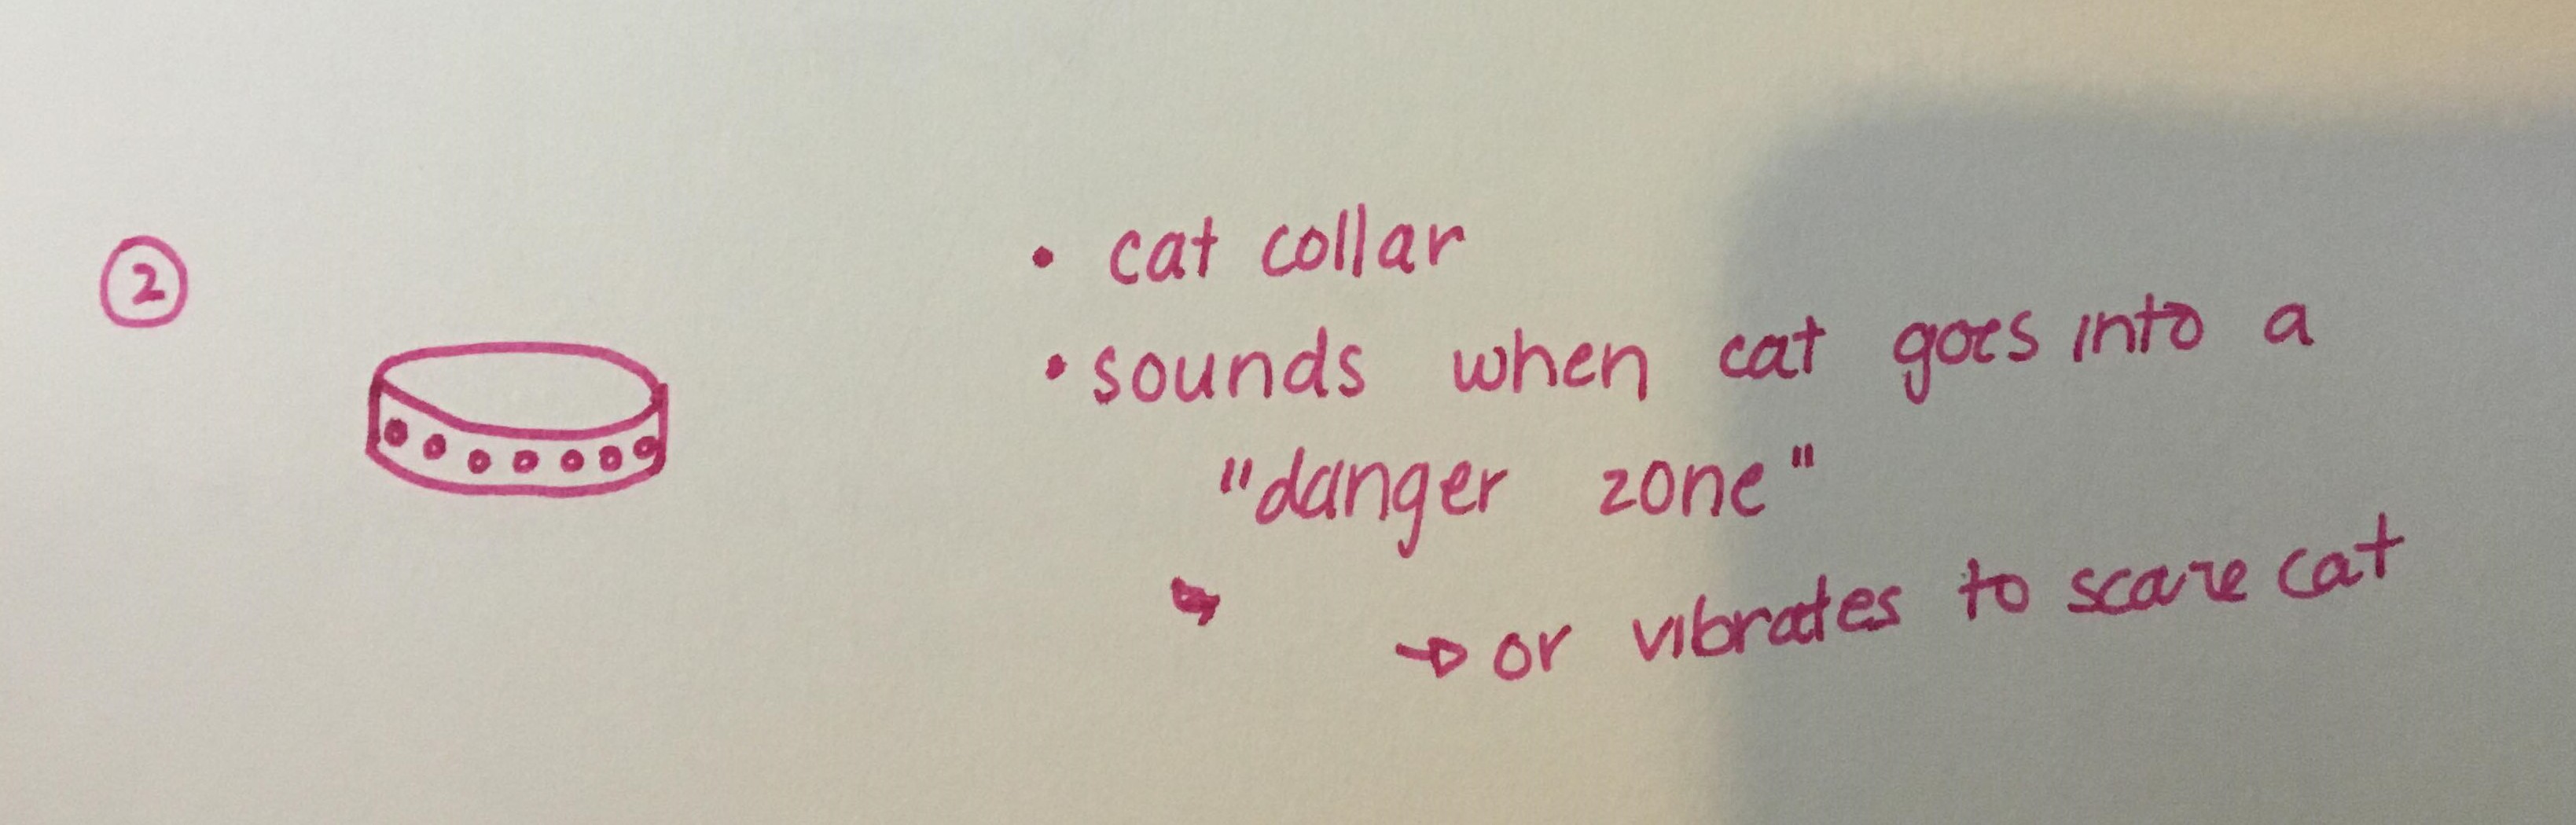 ②
• cat collar
• sounds when cat goes into a
"danger zone"
→ or vibrates to scare cat